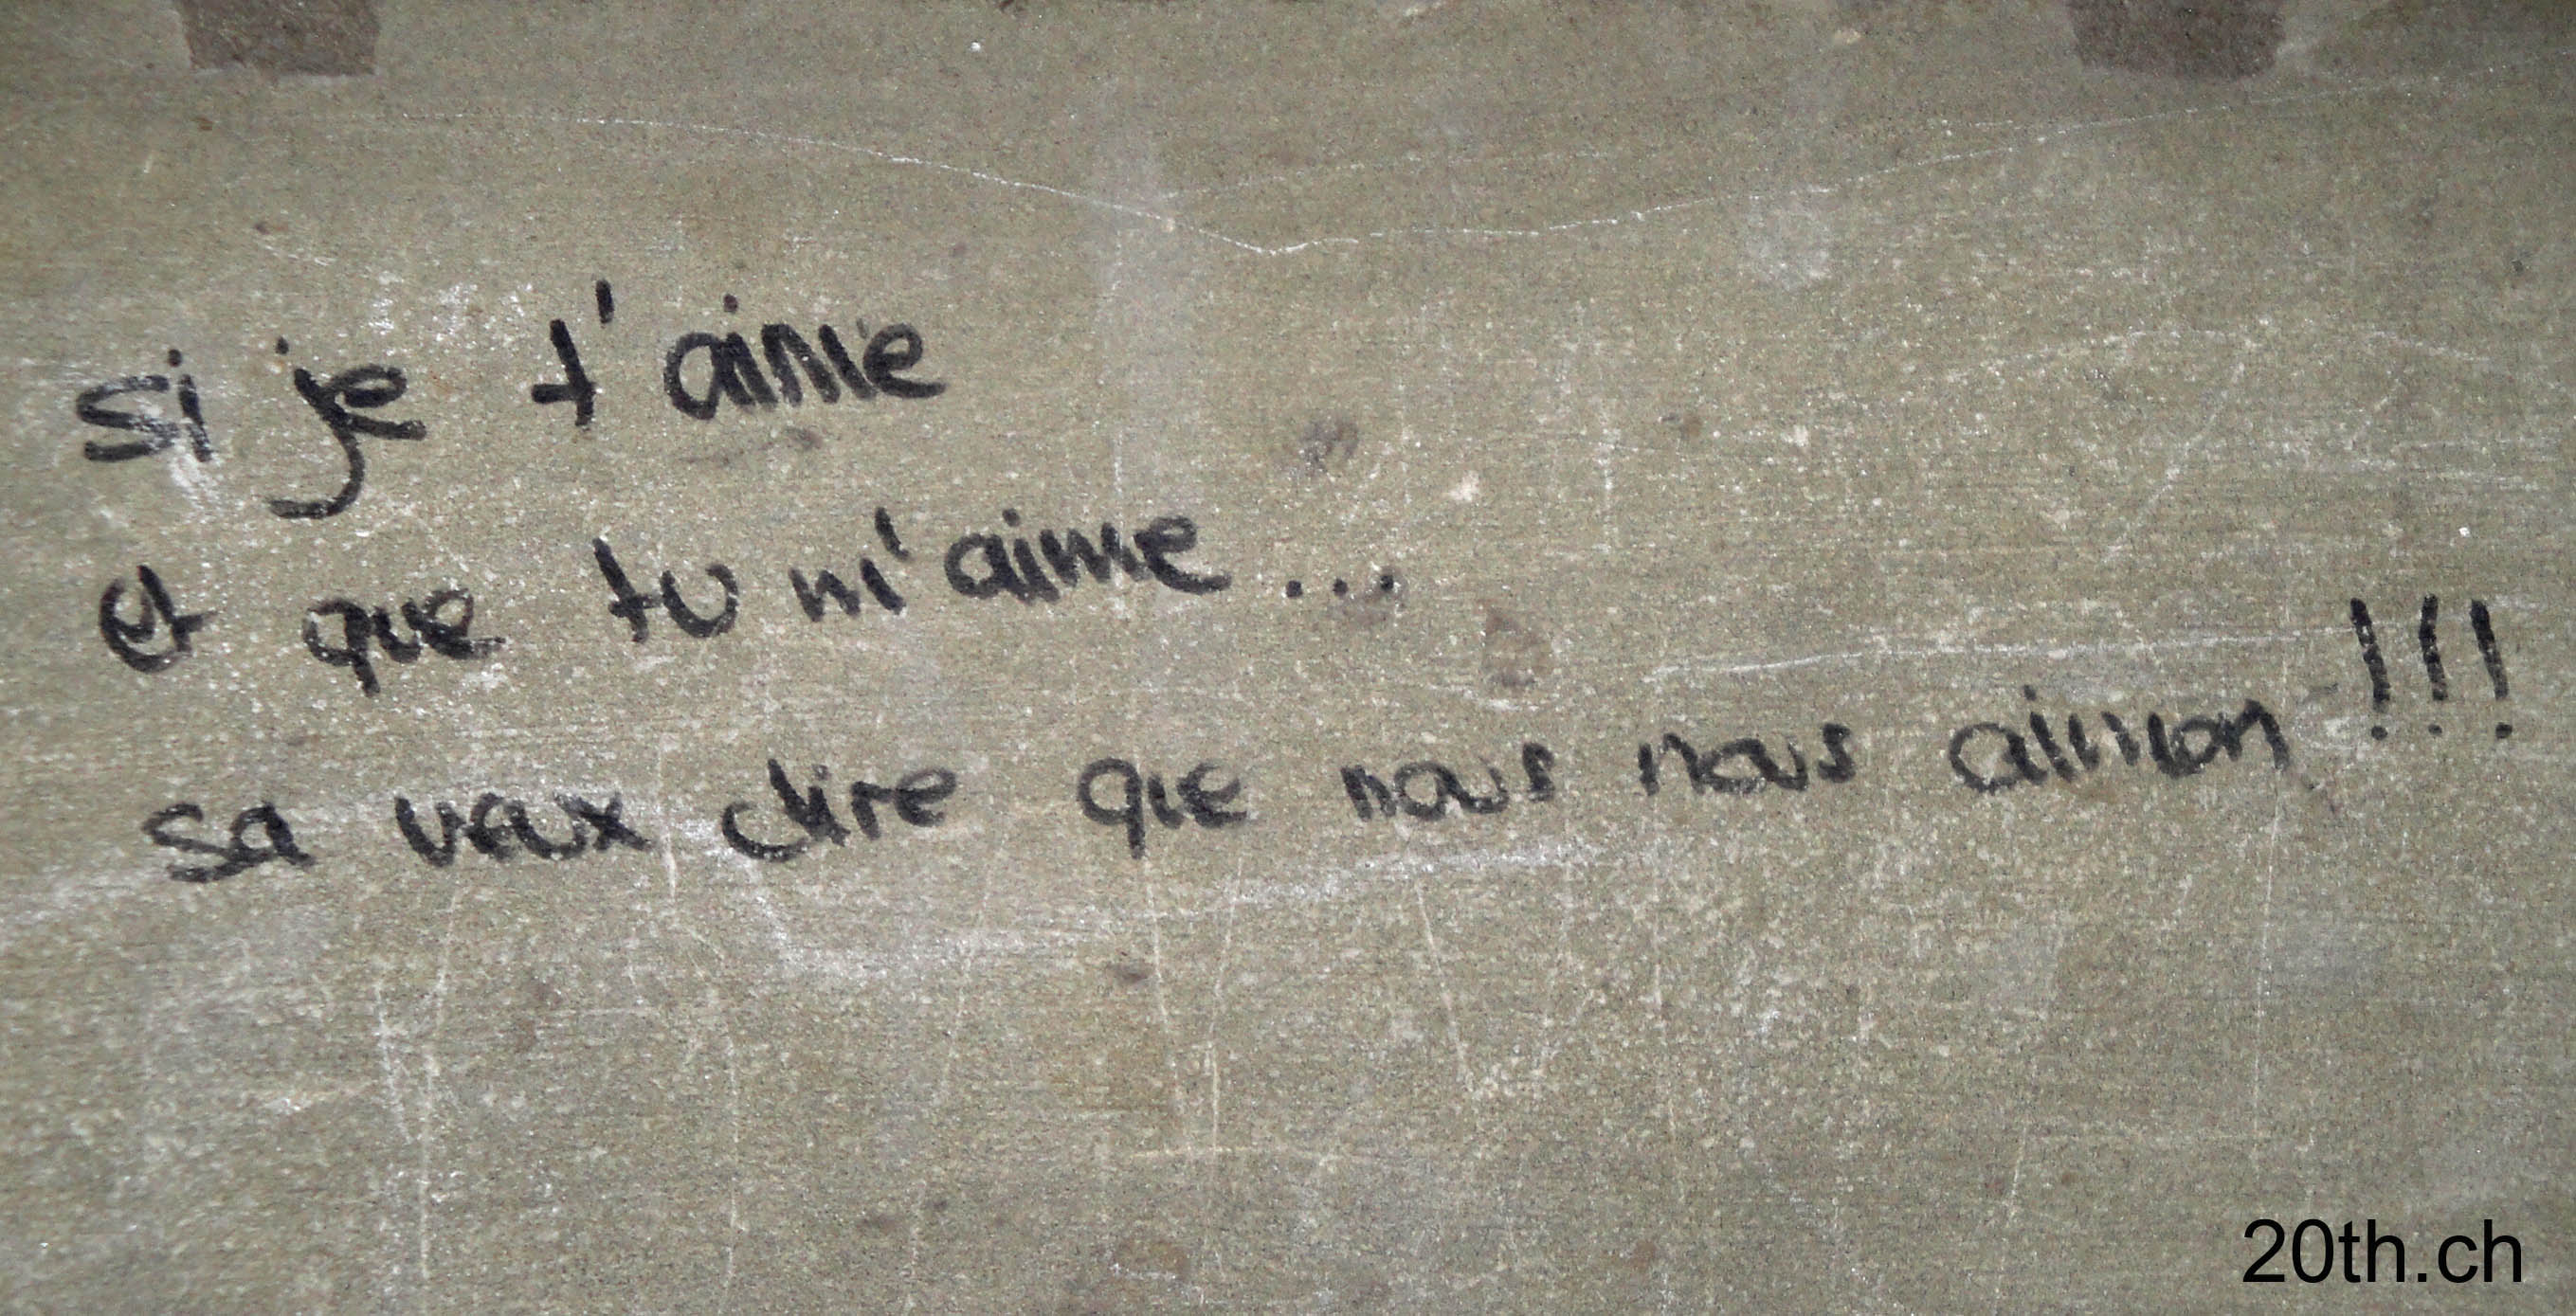 si je t'aime
et que tu m'aime...
sa veux dire que nous nous aimon !!!
20th.ch